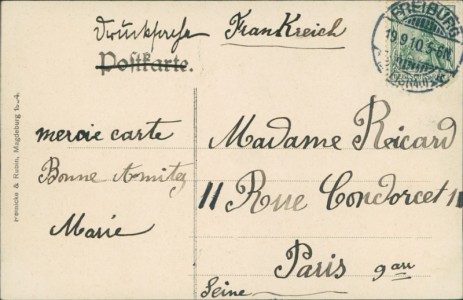 Drucksache Frankreich
Postkarte.
FREIBURG
19.9.10.5-6N
mercie carte
Bonne Amitez
Marie
Madame Ricard
11 Rue Condorcet 11
Paris 9 arr
Seine
Magdeburg